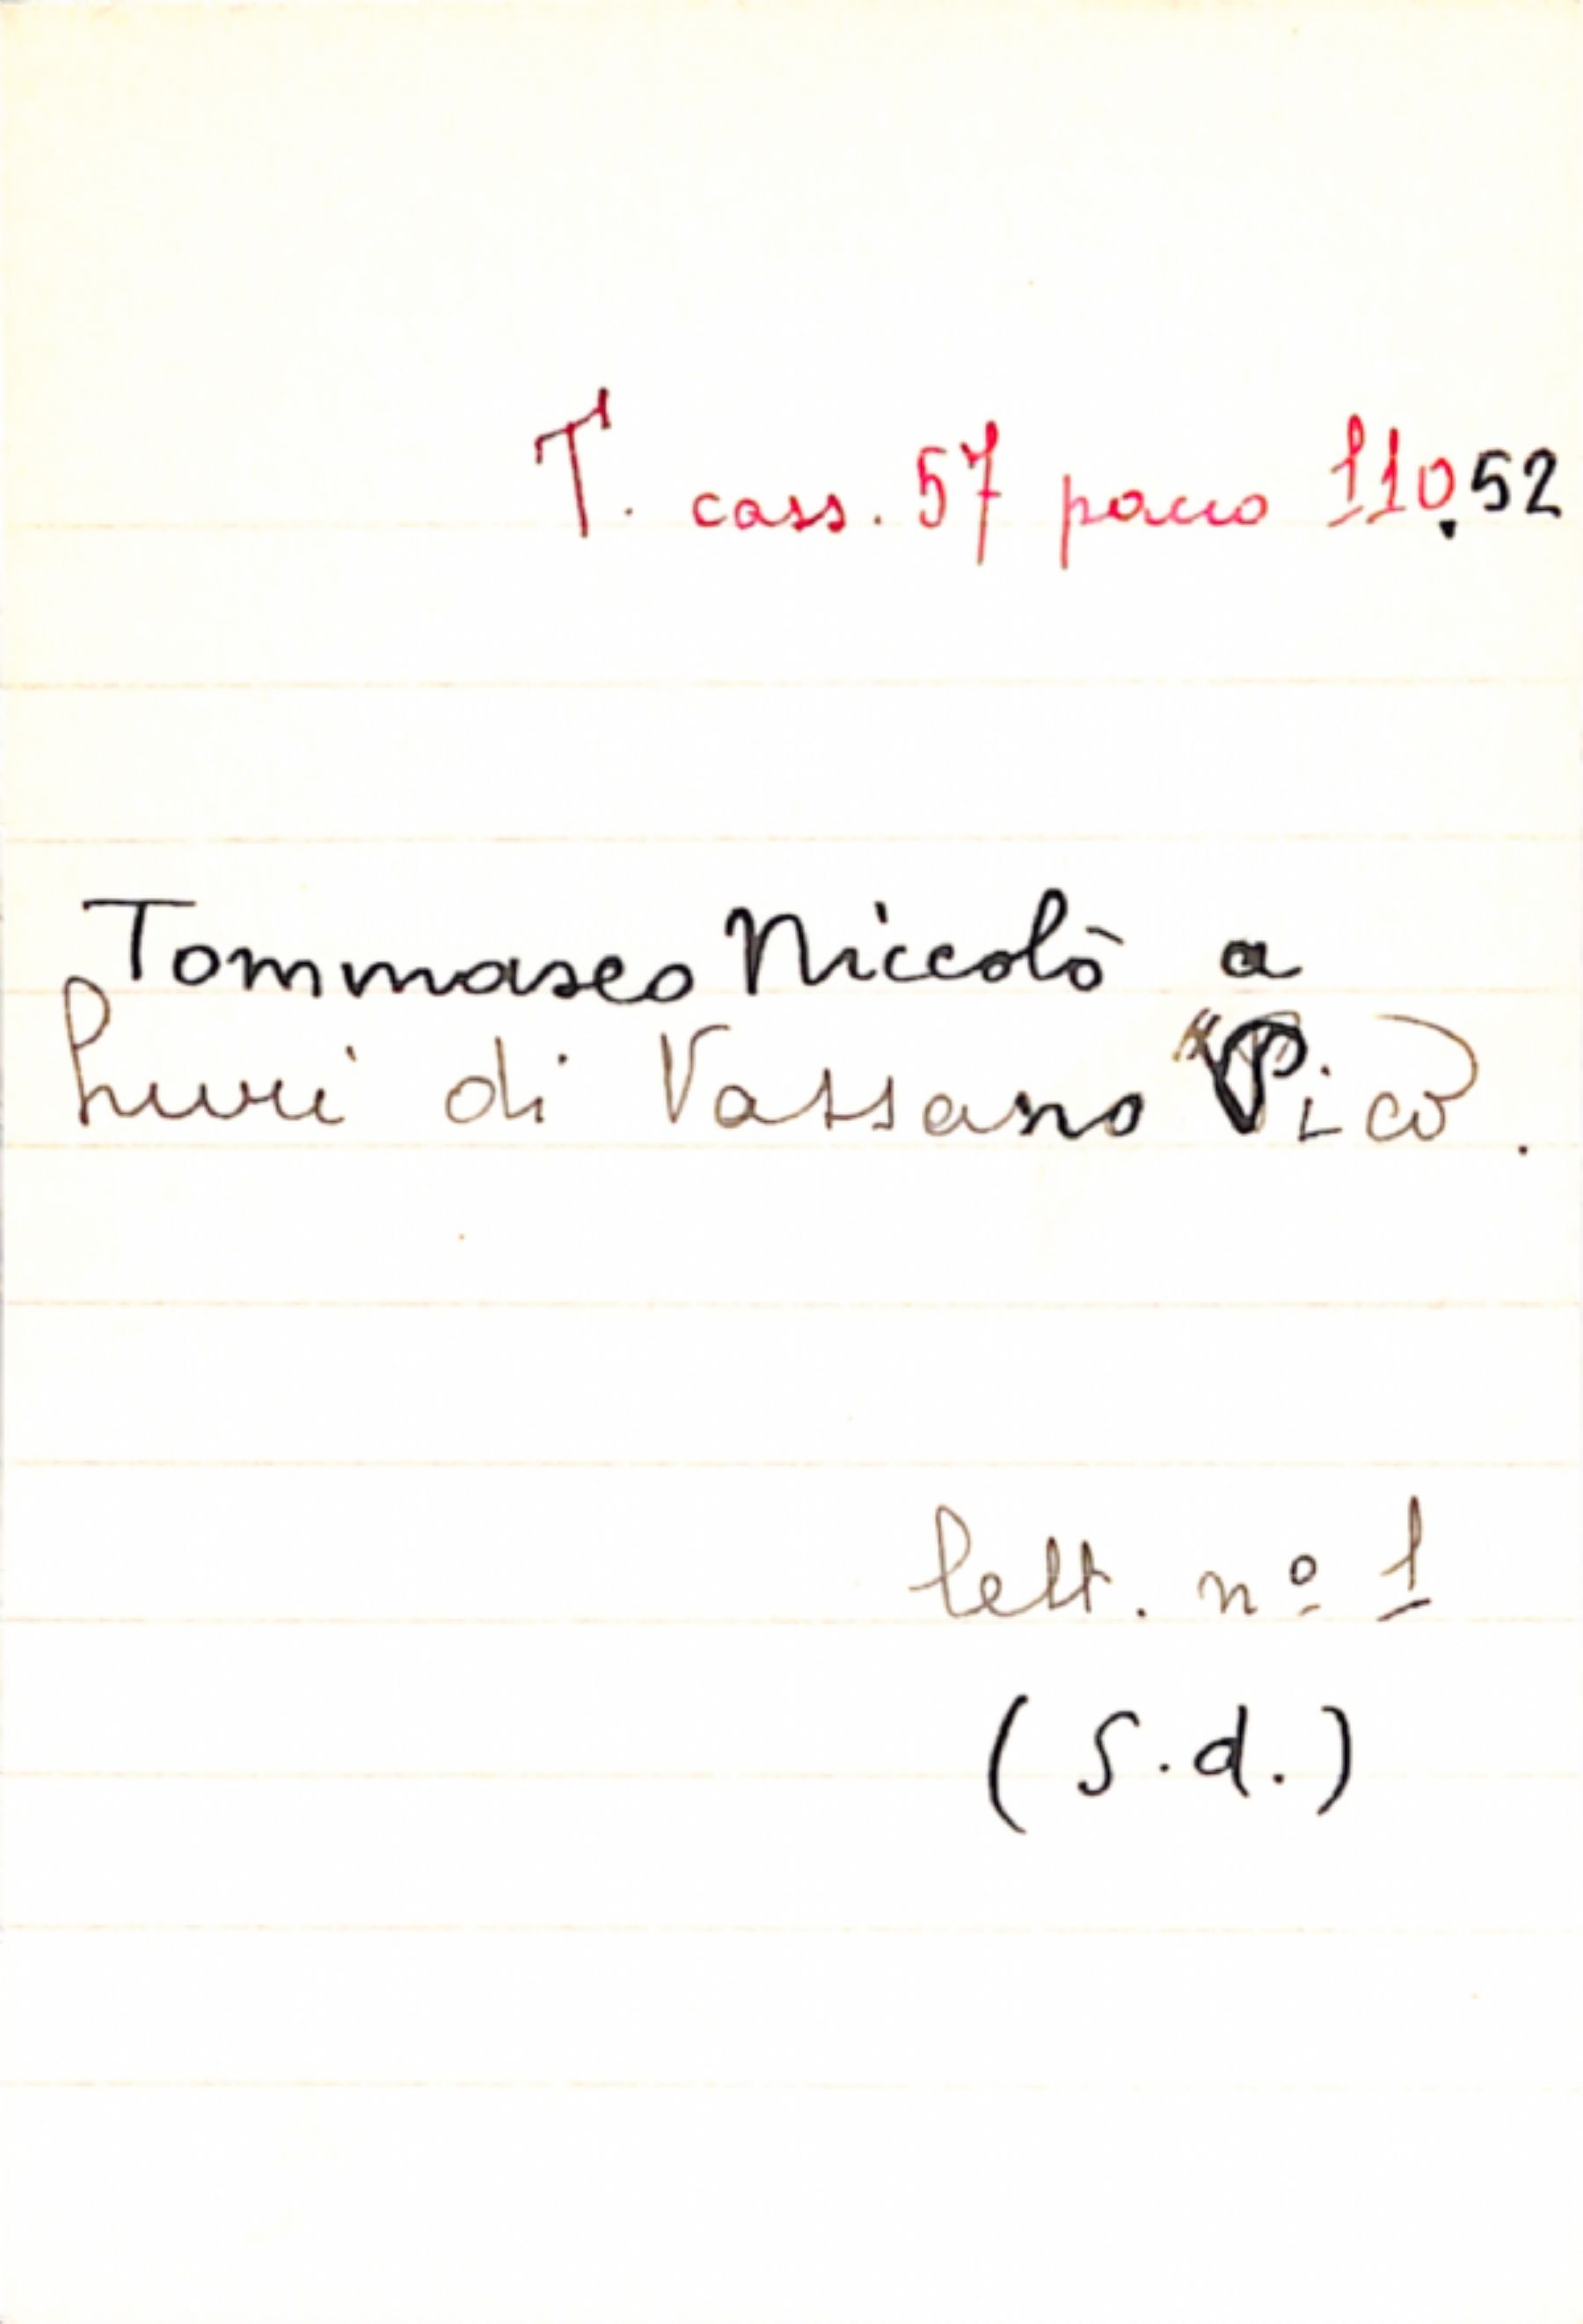 T. cass. 57 pacco 110.52
Tommaseo Niccolò a
Luvri di Vassano Pico.
lett. nº 1
(S.d.)